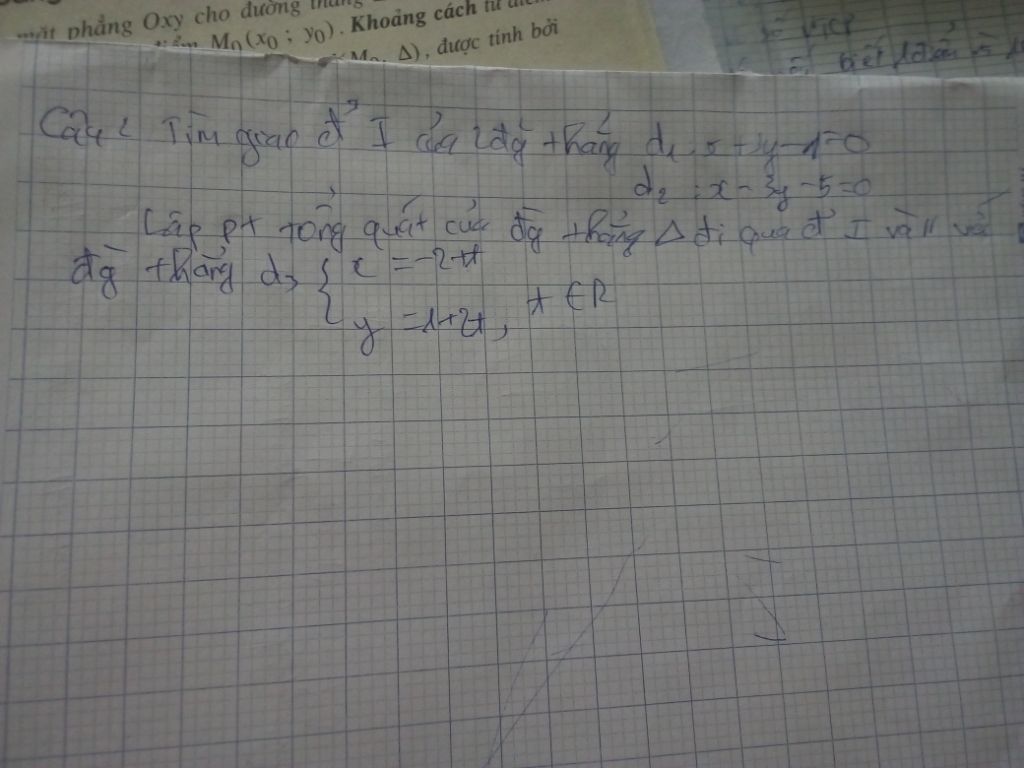 mặt phẳng Oxy cho đường thẳng
điểm M₀(x₀ ; y₀). Khoảng cách từ điểm
(M₀, Δ), được tính bởi
Câu 2 Tìm giao đ² I của 2 đg thẳng d₁ : x+y-1=0
d₂ : x-3y-5=0
Lập pt tổng quát của đg thẳng Δ đi qua đ² I và // với
đg thẳng d₃ { x = -2+t
y = 1+2t, t ∈ R